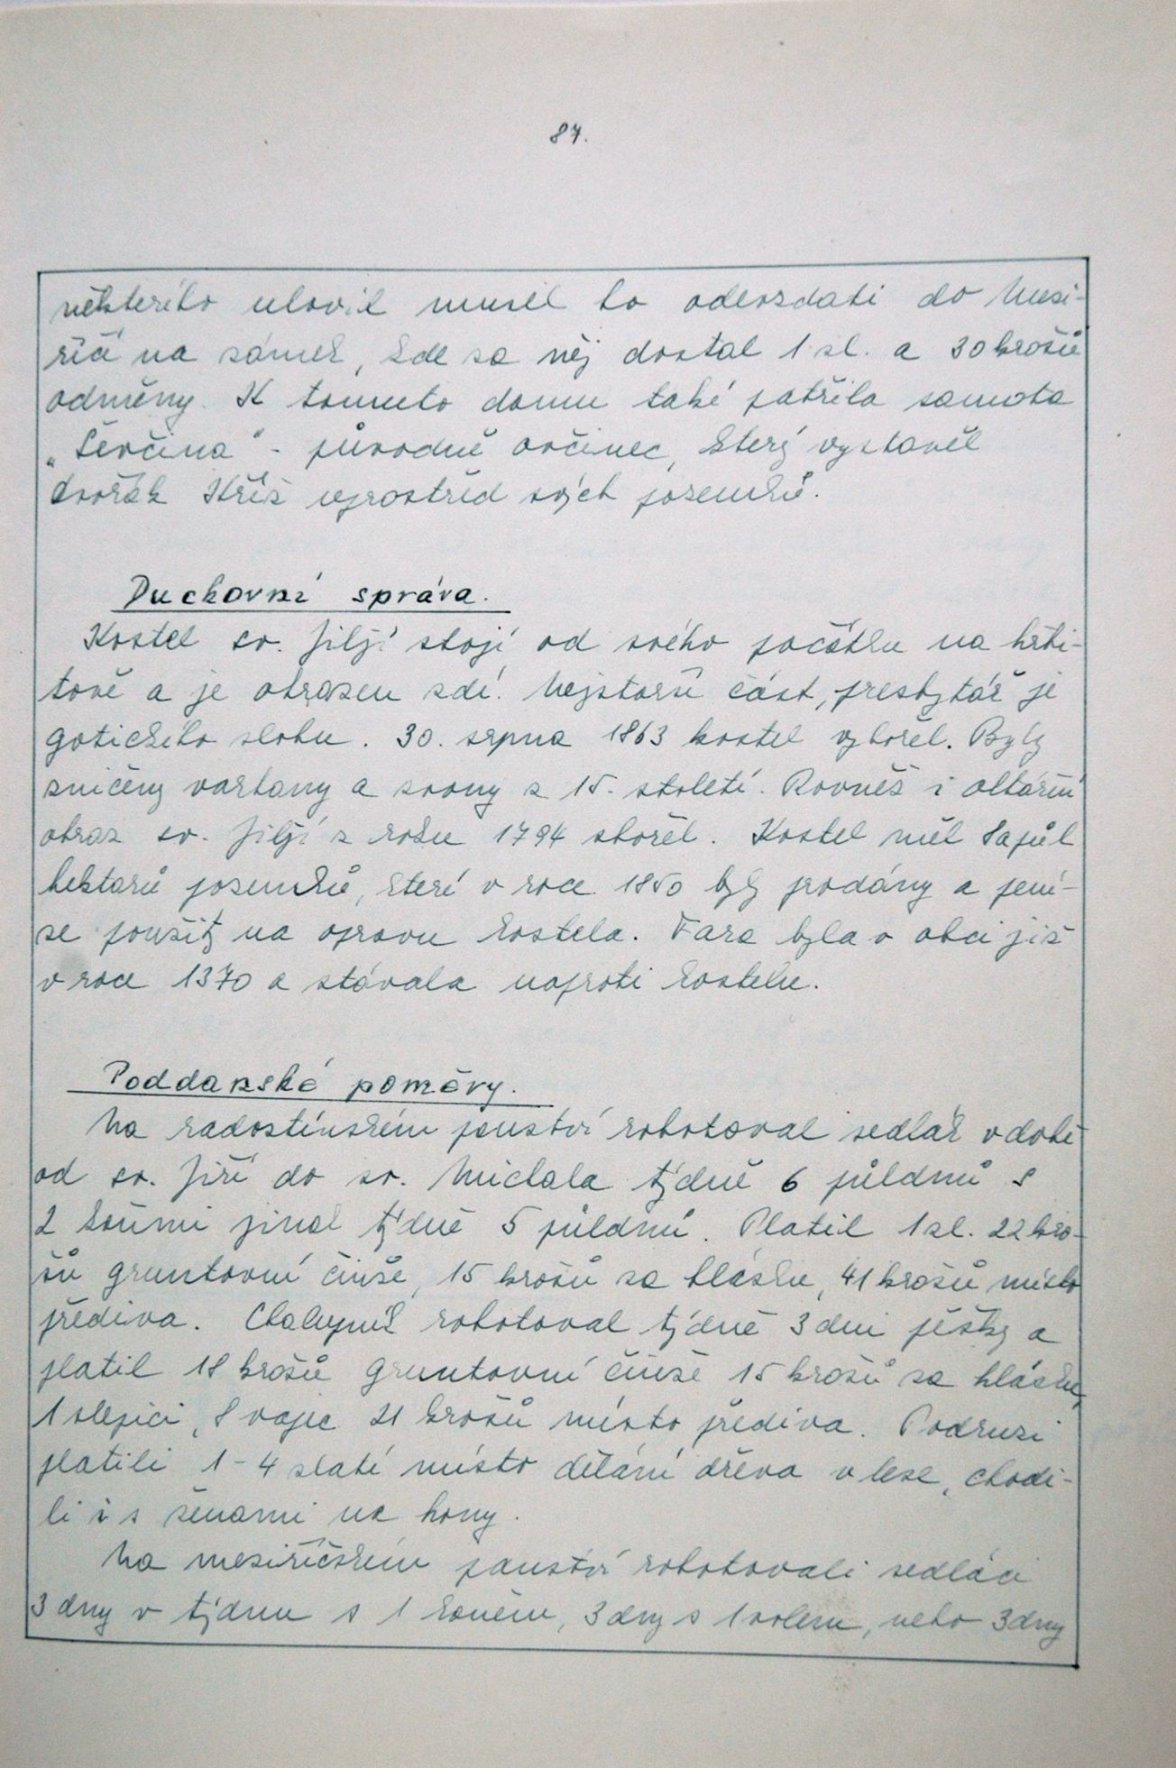 87.
některého ulovil musel ho odevzdati do Mezi-
říčí na zámek, kde za něj dostal 1 zl. a 30 grošů
odměny. K tomuto domu také patřila samota
„Ševčina" - původně ovčinec, který vystavěl
dvořák Kříž uprostřed svých pozemků.
Duchovní správa.
Kostel sv. Jiljí stojí od svého počátku na hřbi-
tově a je ohrazen zdí. Nejstarší část, presbytář je
gotického slohu. 30. srpna 1863 kostel vyhořel. Byly
zničeny varhany a zvony z 15. století. Rovněž i oltářní
obraz sv. Jiljí z roku 1794 shořel. Kostel měl 8 a půl
hektarů pozemků, které v roce 1850 byly prodány a pení-
ze použity na opravu kostela. Fara byla v obci již
v roce 1370 a stávala naproti kostelu.
Poddanské poměry.
Na radostínském panství robotoval sedlák v době
od sv. Jiří do sv. Michala týdně 6 půldnů s
2 koňmi jinak týdně 5 půldnů. Platil 1 zl. 22 gro-
šů gruntovní činže, 15 grošů za hlásku, 41 grošů místo
přediva. Chalupník robotoval týdně 3 dni pěšky a
platil 18 grošů gruntovní činže 15 grošů za hlásku,
1 slepici, 8 vajec 21 grošů místo přediva. Podruzi
platili 1-4 zlaté místo dělání dřeva v lese, chodi-
li i s ženami na hony.
Na meziříčském panství robotovali sedláci
3 dny v týdnu s 1 koněm, 3 dny s 1 volem, nebo 3 dny